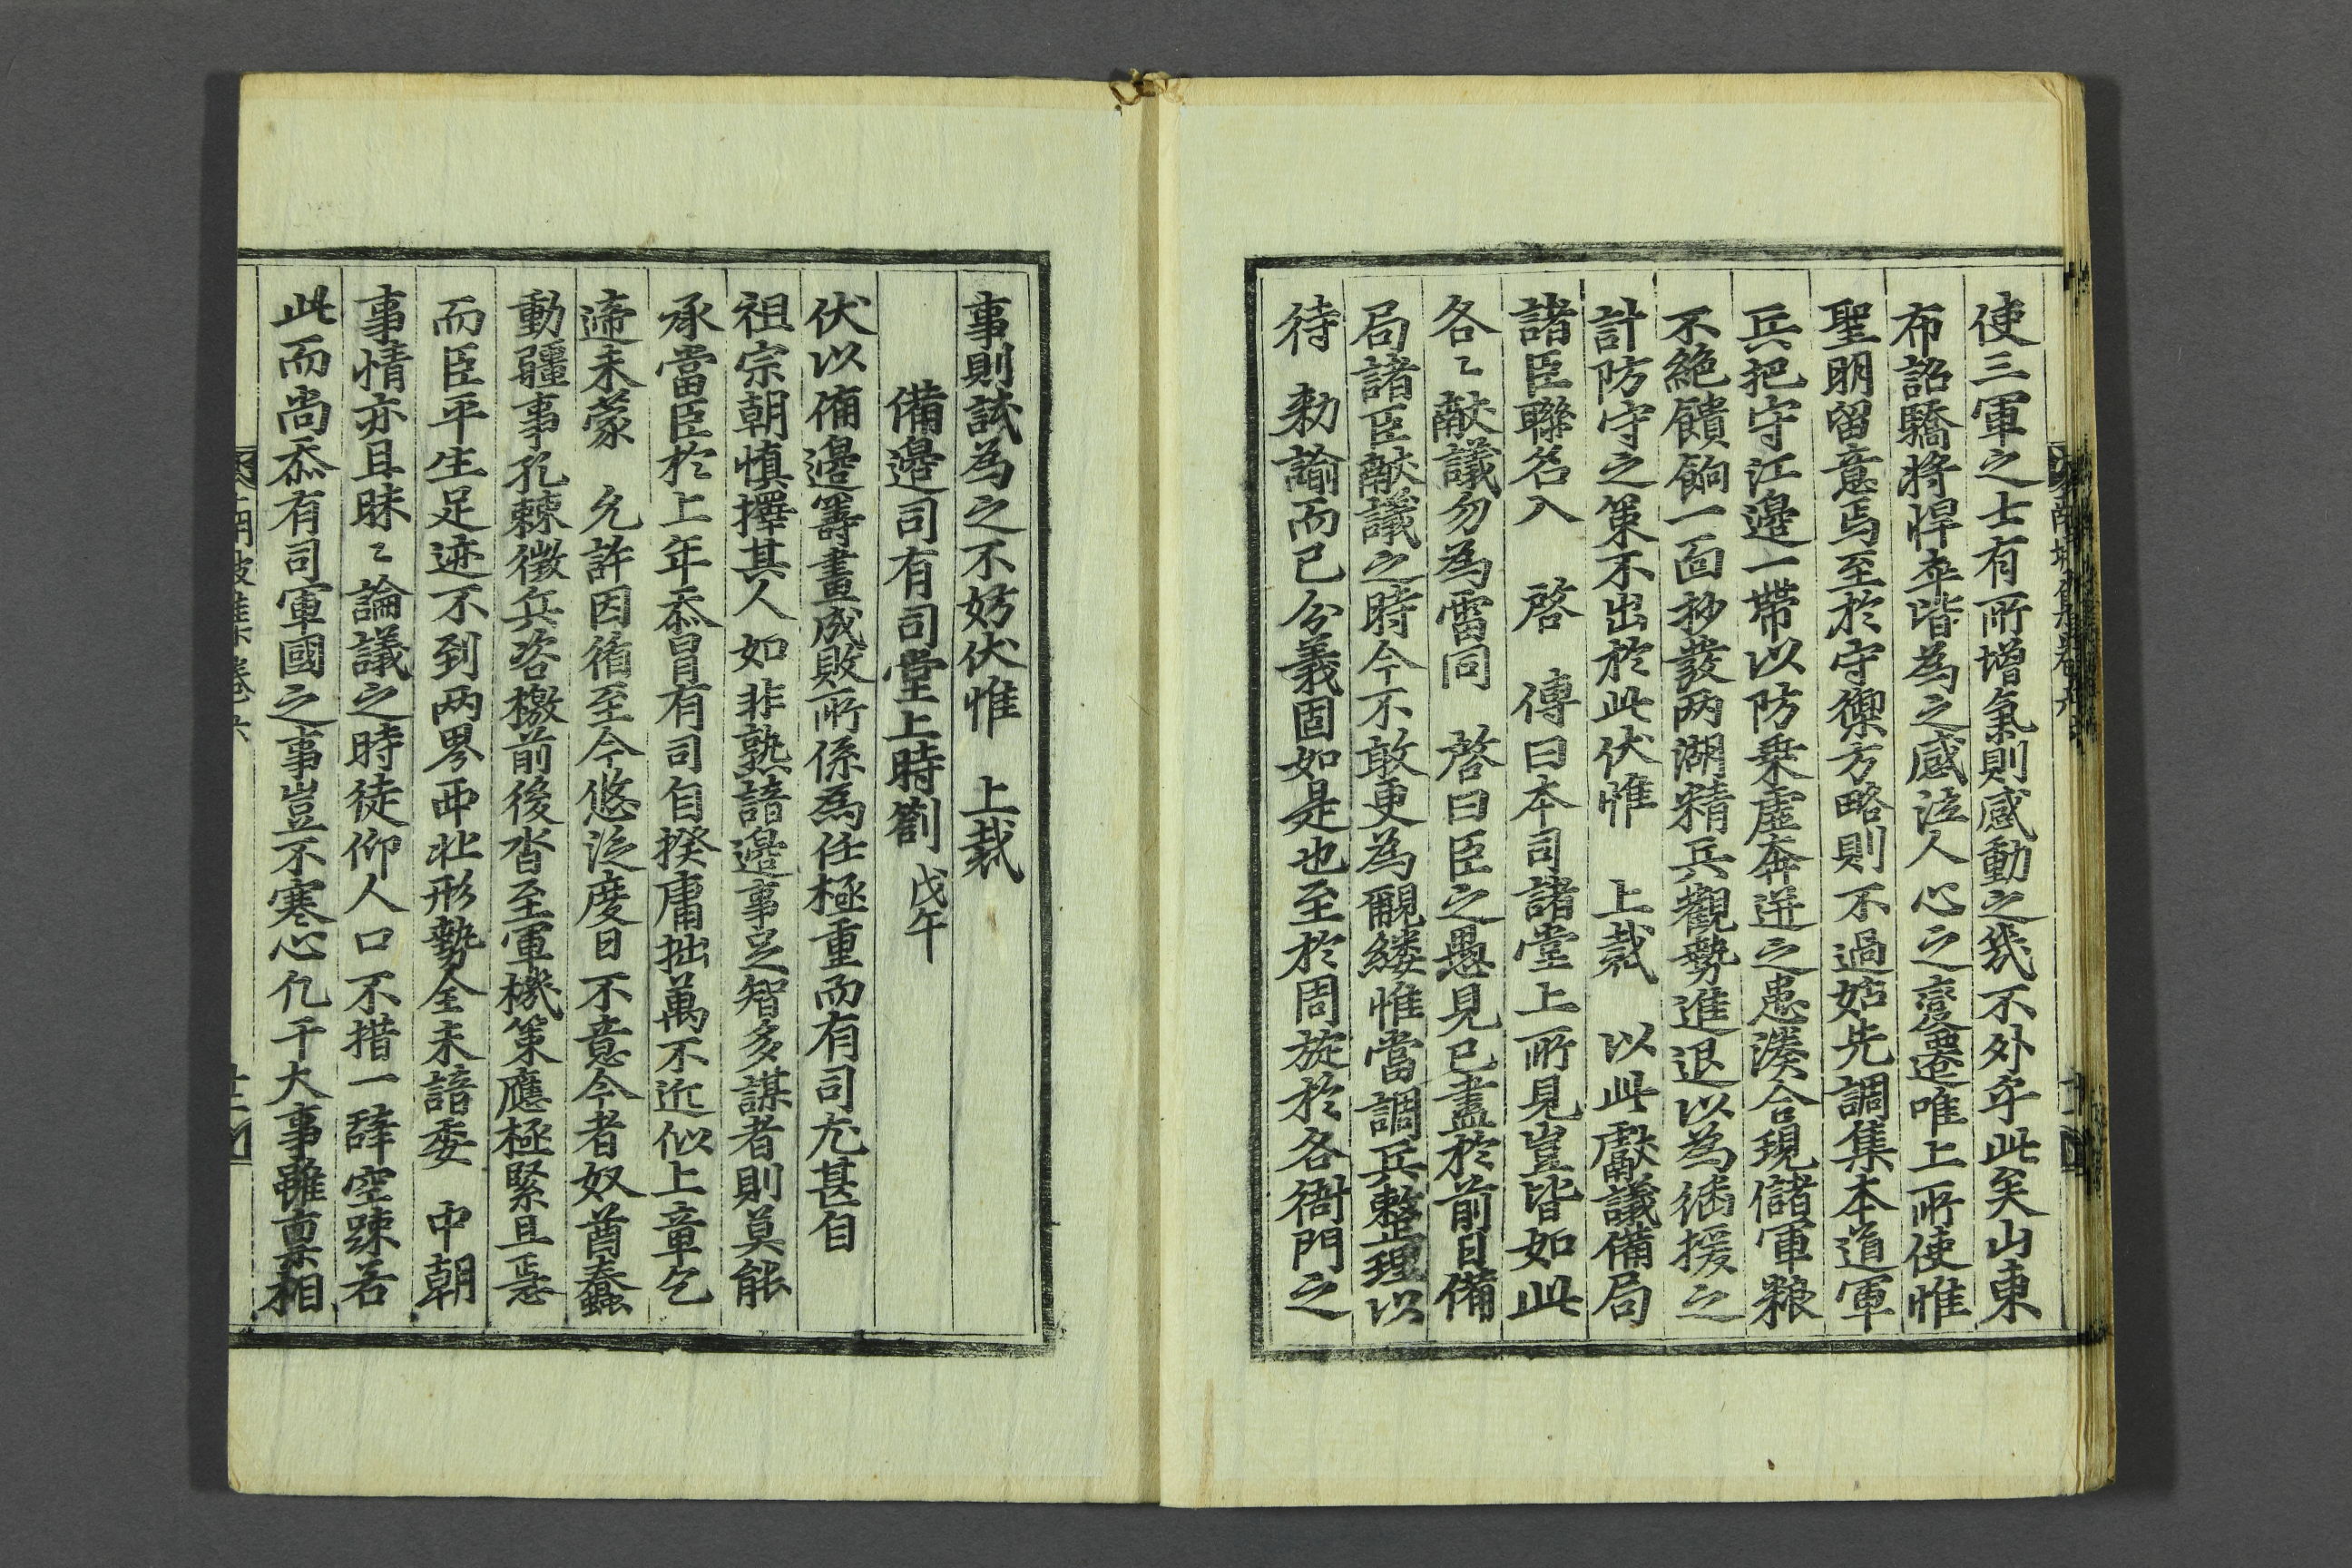 使三軍之士有所增氣則感動之幾不外乎此矣山東
布詔驕將悍卒皆為之感泣人心之變遷唯上所使惟
聖明留意焉至於守禦方略則不過姑先調集本道軍
兵把守江邊一帶以防乗虛奔迸之患湊合現儲軍粮
不絶饋餉一面抄發两湖精兵觀勢進退以為繼援之
計防守之策不出於此伏惟 上裁 以此獻議備局
諸臣聯名入 啓 傳曰本司諸堂上所見豈皆如此
各〻献議勿為雷同 啓曰臣之愚見已盡於前日備
局諸臣献議之時今不敢更為覼縷惟當調兵整理以
待 勅諭而已分義固如是也至於周旋於各衙門之
事則試為之不妨伏惟 上裁
備邊司有司堂上時劄 戊午
伏以備邊籌畫成敗所係為任極重而有司尤甚自
祖宗朝慎擇其人如非熟諳邊事足智多謀者則莫能
承當臣於上年忝冒有司自揆庸拙萬不近似上章乞
遞未蒙 允許因循至今悠泛度日不意今者奴酋蠢
動疆事孔棘徵兵咨檄前後沓至軍機策應極緊且惡
而臣平生足迹不到两界西北形勢全未諳委 中朝
事情亦且昧〻論議之時徒仰人口不措一辞空踈若
此而尚忝有司軍國之事豈不寒心凡干大事雖禀相
卷六